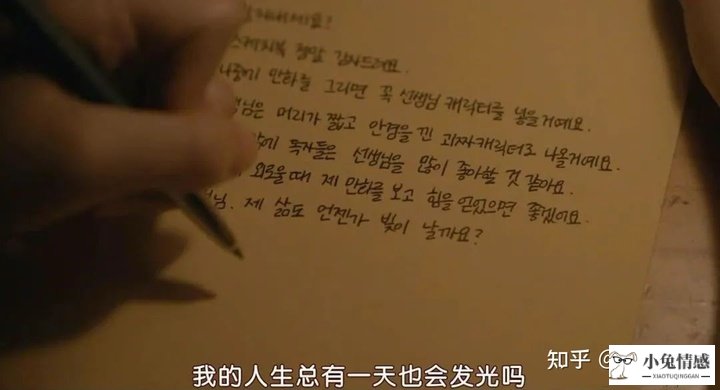 스케치북 정말 감사드려요.
나중에 만화를 그리면 꼭 선생님 캐릭터를 넣을거예요.
님은 머리가 짧고 안경을 낀 괴짜캐릭터로 나올거예요.
독자들은 선생님을 많이 좋아할 것 같아요.
외로울 때 제 만화를 보고 힘을 얻었으면 좋겠어요.
님. 제 삶도 언젠가 빛이 날까요?
知乎 @
小兔情感
XIAOTUQINGGAN
我的人生总有一天也会发光吗